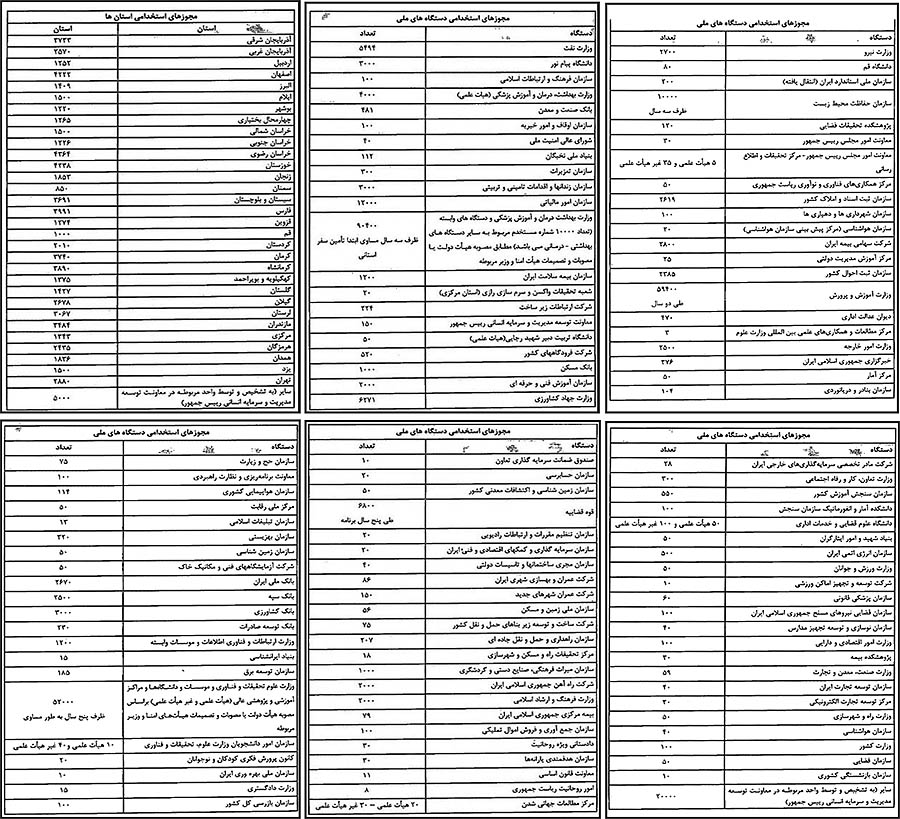 مجوزهای استخدامی دستگاه های ملی
دستگاه تعداد
وزارت نیرو ۲۷۰۰
دانشگاه قم ۸۰
سازمان ملی استاندارد ایران (انتقال یافته) ۲۰۰
سازمان حفاظت محیط زیست ۱۰۰۰۰
ظرف سه سال
پژوهشکده تحقیقات فضایی ۱۲۰
معاونت امور مجلس رییس جمهور ۳۰
معاونت امور مجلس رییس جمهور- مرکز تحقیقات و اطلاع رسانی ۵ هیأت علمی و ۳۵ غیر هیأت علمی
مرکز همکاری‌های فناوری و نوآوری ریاست جمهوری ۵۰
سازمان ثبت اسناد و املاک کشور ۲۶۱۹
سازمان شهرداری ها و دهیاری ها ۱۰۰
سازمان هواشناسی (مرکز پیش بینی سازمان هواشناسی) ۲۰
شرکت سهامی بیمه ایران ۲۸۰۰
مرکز آموزش مدیریت دولتی ۲۵
سازمان ثبت احوال کشور ۲۳۸۵
وزارت آموزش و پرورش ۵۹۴۰۰
طی دو سال
دیوان عدالت اداری ۴۷۰
مرکز مطالعات و همکاری‌های علمی بین المللی وزارت علوم ۳
وزارت امور خارجه ۲۵۰۰
خبرگزاری جمهوری اسلامی ایران ۲۷۶
مرکز آمار ۵۰
سازمان بنادر و دریانوردی ۱۰۴
مجوزهای استخدامی دستگاه های ملی
دستگاه تعداد
وزارت نفت ۵۴۹۴
دانشگاه پیام نور ۳۰۰۰
سازمان فرهنگ و ارتباطات اسلامی ۱۰۰
وزارت بهداشت، درمان و آموزش پزشکی (هیات علمی) ۴۰۰۰
بانک صنعت و معدن ۴۸۱
سازمان اوقاف و امور خیریه ۱۰۰
شورای عالی امنیت ملی ۴۰
بنیاد ملی نخبگان ۱۱۲
سازمان تعزیرات ۳۰۰
سازمان زندانها و اقدامات تامینی و تربیتی ۳۰۰۰
سازمان امور مالیاتی ۱۲۰۰۰
وزارت بهداشت درمان و آموزش پزشکی و دستگاه های وابسته ۹۰۴۰۰
(تعداد ۱۰۰۰۰ شماره مستخدم مربوط به سایر دستگاه های ظرف سه سال مساوی ابتدا تأمین سفر
بهداشتی - درمانی می باشد) مطابق مصوبه هیأت دولت یا استانی
مصوبات و تصمیمات هیأت امنا و وزیر مربوطه
سازمان بیمه سلامت ایران ۱۲۰۰
شعبه تحقیقات واکسن و سرم سازی رازی (استان مرکزی) ۲۰
شرکت ارتباطات زیر ساخت ۲۲۴
معاونت توسعه مدیریت و سرمایه انسانی رییس جمهور ۱۵۰
دانشگاه تربیت دبیر شهید رجایی(هیات علمی) ۵۰
شرکت فرودگاههای کشور ۵۲۰
بانک مسکن ۱۰۰۰
سازمان آموزش فنی و حرفه ای ۲۰۰۰
وزارت جهاد کشاورزی ۶۲۷۱
مجوزهای استخدامی استان ها
استان استان
آذربایجان شرقی ۳۷۳۳
آذربایجان غربی ۳۵۷۰
اردبیل ۱۲۵۲
اصفهان ۴۲۳۲
البرز ۱۴۰۹
ایلام ۱۵۰۰
بوشهر ۱۲۲۰
چهارمحال بختیاری ۱۲۶۵
خراسان شمالی ۱۵۰۰
خراسان جنوبی ۱۲۲۶
خراسان رضوی ۴۳۶۴
خوزستان ۴۲۳۸
زنجان ۱۸۵۳
سمنان ۸۵۰
سیستان و بلوچستان ۳۶۹۱
فارس ۳۹۹۱
قزوین ۱۲۷۴
قم ۱۰۰۰
کردستان ۲۰۱۰
کرمان ۳۷۴۰
کرمانشاه ۳۸۹۰
کهگیلویه و بویراحمد ۱۳۷۵
گلستان ۱۴۲۷
گیلان ۲۶۷۸
لرستان ۳۰۶۷
مازندران ۳۴۸۴
مرکزی ۱۲۴۳
هرمزگان ۲۴۳۵
همدان ۱۸۳۶
یزد ۱۵۰۰
تهران ۲۸۸۰
سایر (به تشخیص و توسط واحد مربوطه در معاونت توسعه ۵۰۰۰
مدیریت و سرمایه انسانی رییس جمهور)
مجوزهای استخدامی دستگاه های ملی
دستگاه تعداد
شرکت مادر تخصصی سرمایه‌گذاری‌های خارجی ایران ۲۸
وزارت تعاون، کار و رفاه اجتماعی ۳۰۰
سازمان سنجش آموزش کشور ۵۵۰
دانشکده آمار و انفورماتیک سازمان سنجش ۱۰۰
دانشگاه علوم قضایی و خدمات اداری ۵۰ هیأت علمی و ۱۰۰ غیر هیأت علمی
بنیاد شهید و امور ایثارگران ۵۰
سازمان انرژی اتمی ایران ۵۰۰
وزارت ورزش و جوانان ۵۰
شرکت توسعه و تجهیز اماکن ورزشی ۱۰
سازمان پزشکی قانونی ۶۰
سازمان قضایی نیروهای مسلح جمهوری اسلامی ایران ۱۰۰
سازمان نوسازی و توسعه تجهیز مدارس ۴۰
وزارت امور اقتصادی و دارایی ۱۰۰
پژوهشکده بیمه ۳۰
وزارت صنعت، معدن و تجارت ۵۹
سازمان توسعه تجارت ایران ۴۰
مرکز توسعه تجارت الکترونیکی ۲۰
وزارت راه و شهرسازی ۵۰
سازمان هواشناسی ۴۰
وزارت کشور ۱۰۰
سازمان فضایی ۵۰
سازمان بازنشستگی کشوری ۱۰
سایر (به تشخیص و توسط واحد مربوطه در معاونت توسعه ۲۰۰۰۰
مدیریت و سرمایه انسانی رییس جمهور)
مجوزهای استخدامی دستگاه های ملی
دستگاه تعداد
صندوق ضمانت سرمایه گذاری تعاون ۱۰
سازمان حسابرسی ۲۰
سازمان زمین شناسی و اکتشافات معدنی کشور ۵۰
قوه قضاییه ۶۸۰۰
طی پنج سال برنامه
سازمان تنظیم مقررات و ارتباطات رادیویی ۲۰
سازمان سرمایه گذاری و کمکهای اقتصادی و فنی ایران ۲۰
سازمان مجری ساختمانها و تاسیسات دولتی ۴۰
شرکت عمران و بهسازی شهری ایران ۸۶
شرکت عمران شهرهای جدید ۱۵۰
سازمان ملی زمین و مسکن ۵۶
شرکت ساخت و توسعه زیر بناهای حمل و نقل کشور ۷۵
سازمان راهداری و حمل و نقل جاده ای ۲۰۷
مرکز تحقیقات راه و مسکن و شهرسازی ۱۸
سازمان میراث فرهنگی، صنایع دستی و گردشگری ۱۰۰۰
شرکت راه آهن جمهوری اسلامی ایران ۲۰۰۰
وزارت فرهنگ و ارشاد اسلامی ۲۰۰۰
بیمه مرکزی جمهوری اسلامی ایران ۷۹
سازمان جمع آوری و فروش اموال تملیکی ۱۰۰
دادستانی ویژه روحانیت ۳۰
سازمان هدفمندی یارانه‌ها ۳۰
معاونت قانون اساسی ۱۱
امور روحانیت ریاست جمهوری ۸
مرکز مطالعات جهانی شدن ۲۰ هیأت علمی – ۳۰ غیر هیأت علمی
مجوزهای استخدامی دستگاه های ملی
دستگاه تعداد
سازمان حج و زیارت ۷۵
معاونت برنامه‌ریزی و نظارت راهبردی ۱۰۰
سازمان هواپیمایی کشوری ۱۱۴
مرکز ملی رقابت ۵۰
سازمان تبلیغات اسلامی ۱۳
سازمان بهزیستی ۳۲۰
سازمان زمین شناسی ۵۰
شرکت آزمایشگاههای فنی و مکانیک خاک ۵۰
بانک ملی ایران ۲۶۷۰
بانک سپه ۲۵۰۰
بانک کشاورزی ۳۰۰۰
بانک توسعه صادرات ۲۳۰
وزارت ارتباطات و فناوری اطلاعات و موسسات وابسته ۱۲۰۰
بنیاد ایرانشناسی ۱۵
سازمان توسعه برق ۱۸۵
وزارت علوم تحقیقات و فناوری و موسسات و دانشگاهها و مراکز
آموزشی و پژوهشی عالی (هیأت علمی و غیر هیأت علمی) براساس ۵۲۰۰۰
مصوبه هیأت دولت یا مصوبات و تصمیمات هیأت‌های امنا و وزیر ظرف پنج سال به طور مساوی
مربوطه
سازمان امور دانشجویان وزارت علوم، تحقیقات و فناوری ۱۰ هیأت علمی و ۴۰ غیر هیأت علمی
کانون پرورش فکری کودکان و نوجوانان ۲۰
سازمان ملی بهره وری ایران ۱۰
وزارت دادگستری ۱۵
سازمان بازرسی کل کشور ۱۰۰